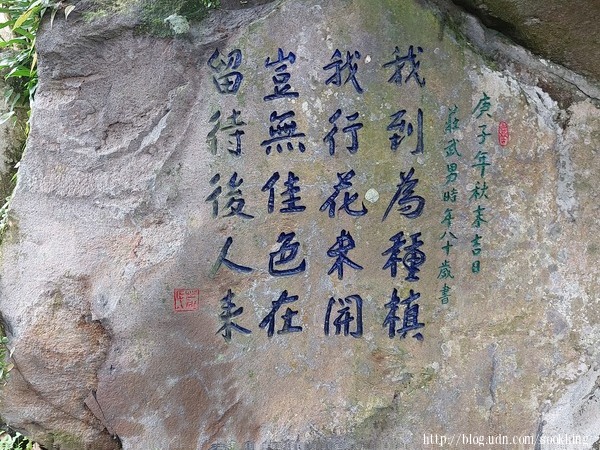 庚子年秋季吉日
莊武男時年八十歲書
我到為種植
我行花未開
豈無佳色在
留待後人来